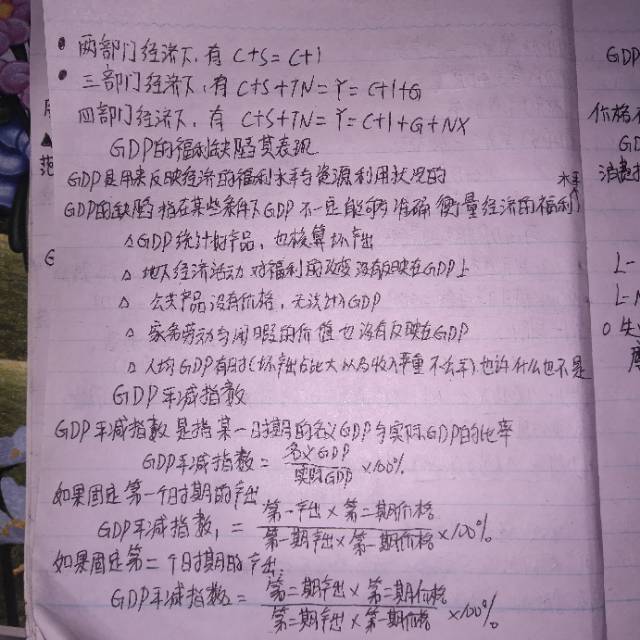 两部门经济下,有 C+S=C+I
三部门经济下,有 C+S+TN=Y=C+I+G
四部门经济下,有 C+S+TN=Y=C+I+G+NX
GDP的福利缺陷其表现
GDP是用来反映经济的福利水平与资源利用状况的
GDP的缺陷指在某些条件下GDP不一定能够准确衡量经济的福利水平
△GDP统计好产品,也核算坏产出
△地下经济活动对福利的改变没有反映在GDP上
△公共产品没有价格,无法计入GDP
△家务劳动与闲暇的价值也没有反映在GDP
△人均GDP有时(坏产出占比大以及收入严重不公平)也许什么也不是
GDP平减指数
GDP平减指数是指某一时期的名义GDP与实际GDP的比率
GDP平减指数=名义GDP/实际GDP×100%
如果固定第一个时期的产出
GDP平减指数1=第一产出×第二期价格/第一期产出×第一期价格×100%
如果固定第二个时期的产出,
GDP平减指数2=第二期产出×第二期价格/第二期产出×第一期价格×100%
GDP
价格
GD
消费
L-
L-